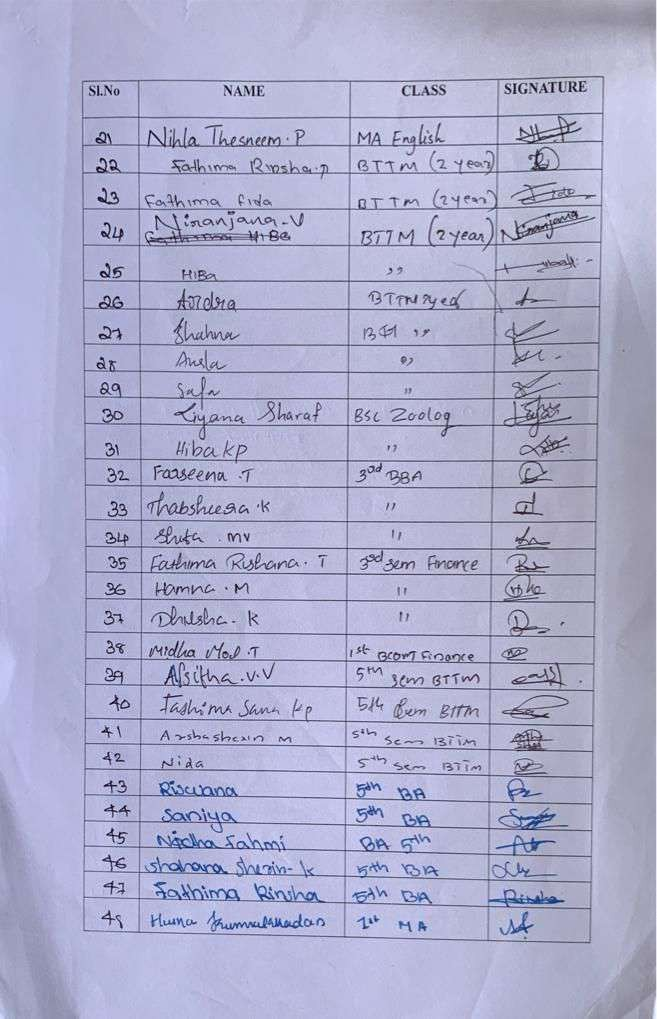 Sl.No NAME CLASS SIGNATURE
21 Nihla Thesneem. P MA English
22 Fathima Rinsha. p BTTM (2 year)
23 Fathima fida BTTM (2 year) Fida
24 Niranjana. V BTTM (2 year) Niranjana
25 HIBa ,,
26 Aardra BTTM 2 yea
27 Shahna ,,
28 ,,
29 Safa ,,
30 Liyana Sharaf BSC Zoolog
31 Hiba kp ,,
32 Farseena . T 3rd BBA
33 Thabsheera . K ,,
34 MV ,,
35 Fathima Rishana. T 3rd sem Finance
36 Hamna . M ,,
37 Dhilsha. K ,,
38 Midha Mol . T 1st BCOM Finance
39 Afsitha. V. V 5th sem BTTM
40 Fashima Sana Kp 5th Sem BTTM
41 Arshasherin M 5th sem BTTM
42 Nida 5th sem BTTM
43 Riswana 5th BA
44 Saniya 5th BA
45 Nidha Fahmi BA 5th
46 Shahara Sherin- k 5th BA
47 Fathima Rinsha 5th BA Rinsha
48 Husna 1st MA